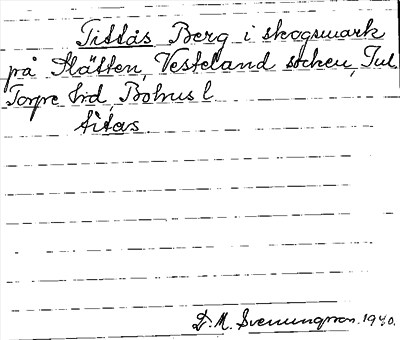 Tittås Berg i skogsmark
på Slätten, Vesteland socken, Tul.
Torpe hd Bohus l
titas
D. M. Svenungsson. 1940.